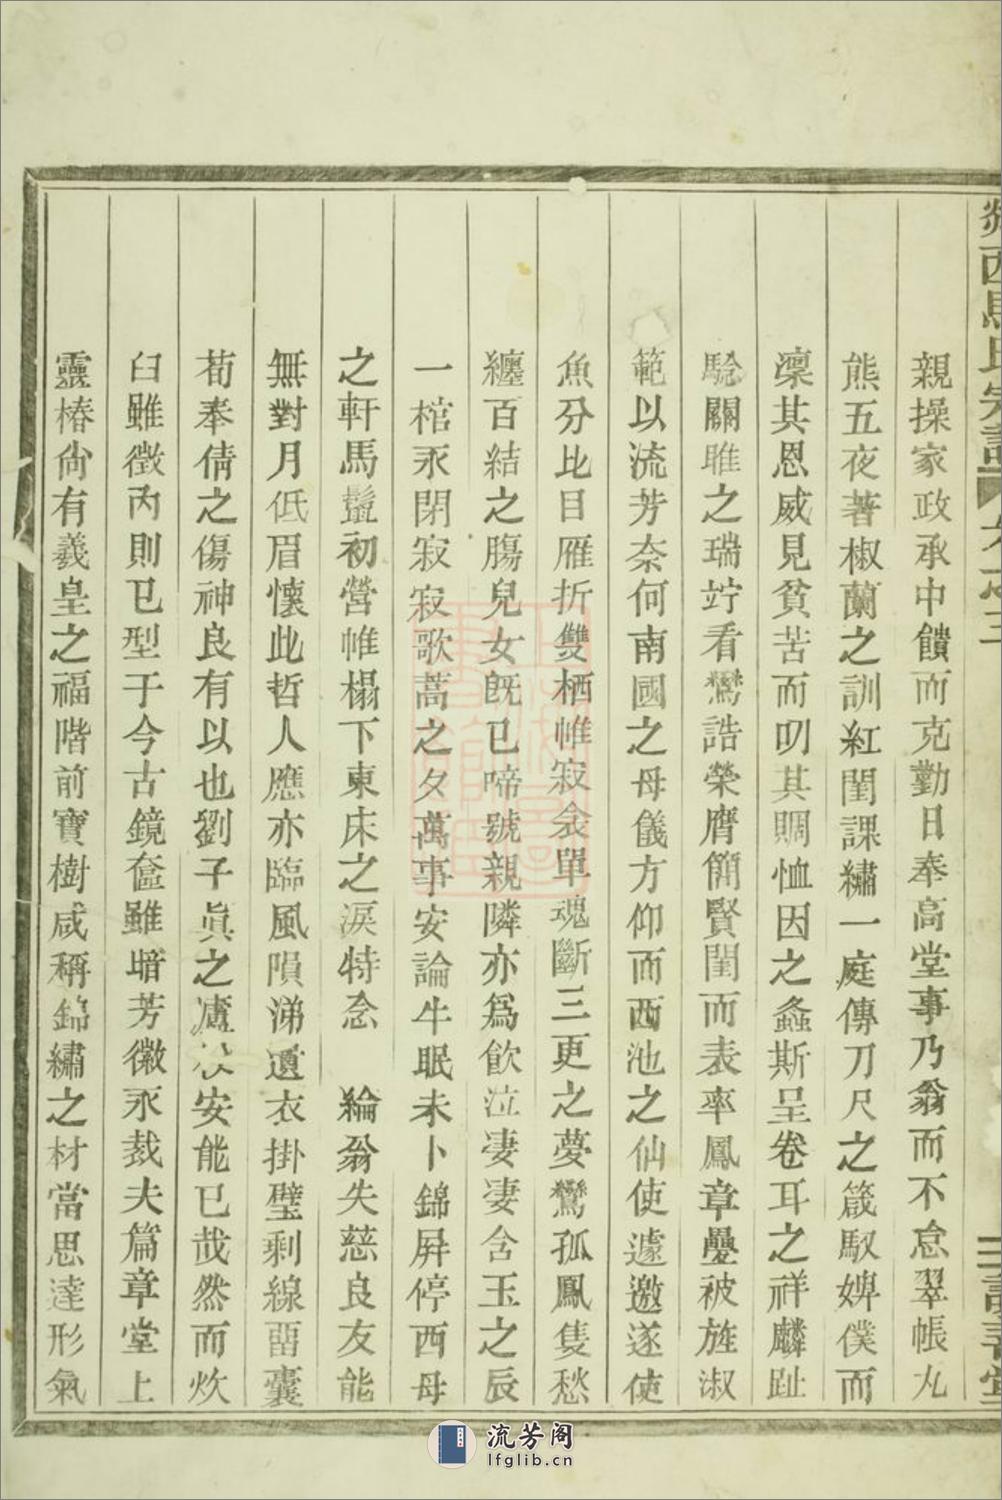 西馬氏宗譜
親操家政承中饋而克勤日奉高堂事乃翁而不怠翠帳丸
熊五夜著椒蘭之訓紅閨課繡一庭傳刀尺之箴馭婢僕而
凜其恩威見貧苦而叨其賙恤因之螽斯呈卷耳之祥麟趾
騐關雎之瑞竚看鸞誥榮膺簡賢閨而表率鳳章疊被旌淑
範以流芳奈何南國之母儀方仰而西池之仙使遽邀遂使
魚分比目雁折雙栖帷寂衾單魂斷三更之夢鸞孤鳳隻愁
纏百結之腸兒女旣已啼號親隣亦爲飮泣凄凄含玉之辰
一棺永閉寂寂歌蒿之夕萬事安論牛眠未卜錦屏停西母
之軒馬鬛初營帷榻下東床之淚特念　綸翁失慈良友能
無對月低眉懷此哲人應亦臨風隕涕遺衣掛璧剩線畱囊
荀奉倩之傷神良有以也劉子眞之安能已哉然而炊
臼雖徵丙則已型于今古鏡奩雖暗芳徽永裁夫篇章堂上
靈椿尙有羲皇之福階前寶樹咸稱錦繡之材當思達形氣
流芳阁
lfglib.cn